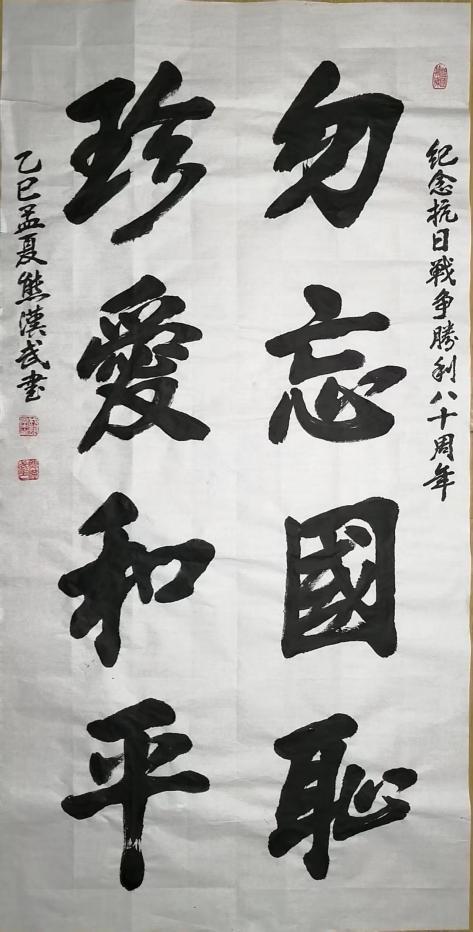 紀念抗日戰争勝利八十周年
勿忘國恥
珍愛和平
乙巳孟夏熊漢武書